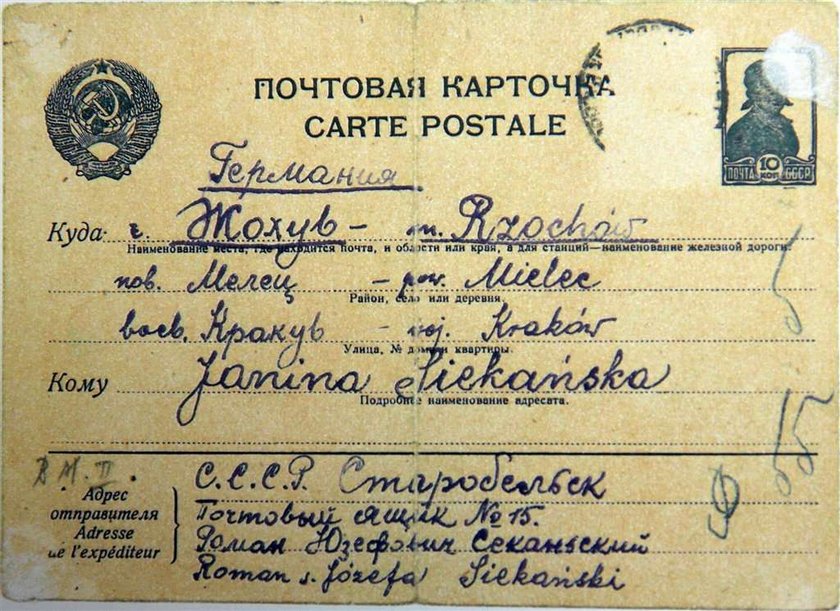 ПОЧТОВАЯ КАРТОЧКА
CARTE POSTALE
ПОЧТА 10 КОП СССР
Германия
Куда г. Жохув – m. Rzochów
Наименование места, где находится почта, и области или края, а для станций—наименование железной дороги.
пов. Мелец – pow. Mielec
Район, село или деревня.
воев. Кракув – woj. Kraków
Улица, № дома и квартиры.
Кому Janina Siekańska
Подробное наименование адресата.
55
С.С.С.Р. Старобельск
Почтовый ящик № 15.
Роман Юзефович Секаньский
Roman s. Józefa Siekański
Адрес
отправителя
Adresse
de l'expéditeur